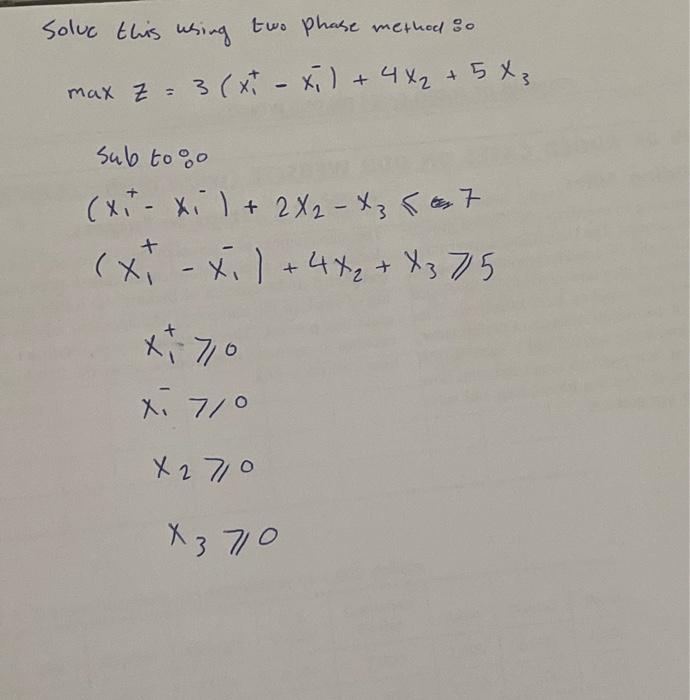 Solve this using two phase method :-
max Z = 3 (x₁⁺ - x₁⁻) + 4x₂ + 5 x₃
Sub to :-
(x₁⁺ - x₁⁻) + 2x₂ - x₃ ≤ 7
(x₁⁺ - x₁⁻) + 4x₂ + x₃ ≥ 5
x₁⁺ ≥ 0
x₁⁻ ≥ 0
x₂ ≥ 0
x₃ ≥ 0